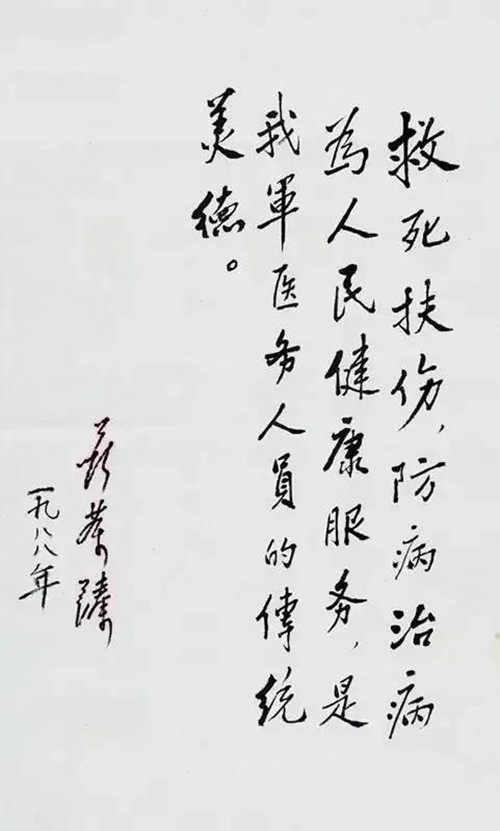 救死扶伤,防病治病
為人民健康服务,是
我軍医务人員的傳統
美德。
聂荣臻
一九八八年